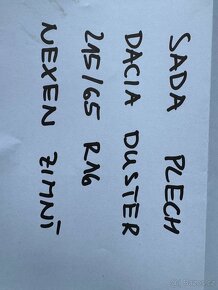 SADA PLECH
DACIA DUSTER
215/65 R16
NEXEN ZIMNÍ